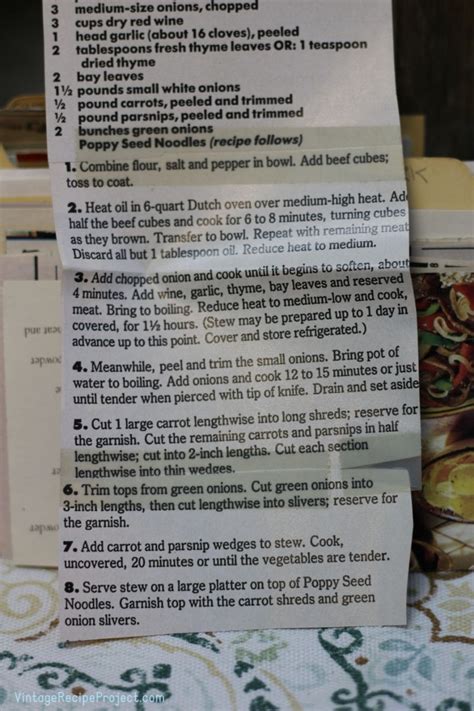 3 medium-size onions, chopped
3 cups dry red wine
1 head garlic (about 16 cloves), peeled
2 tablespoons fresh thyme leaves OR: 1 teaspoon
dried thyme
2 bay leaves
1½ pounds small white onions
½ pound carrots, peeled and trimmed
½ pound parsnips, peeled and trimmed
2 bunches green onions
Poppy Seed Noodles (recipe follows)
1. Combine flour, salt and pepper in bowl. Add beef cubes;
toss to coat.
2. Heat oil in 6-quart Dutch oven over medium-high heat. Add
half the beef cubes and cook for 6 to 8 minutes, turning cubes
as they brown. Transfer to bowl. Repeat with remaining meat
Discard all but 1 tablespoon oil. Reduce heat to medium.
3. Add chopped onion and cook until it begins to soften, about
4 minutes. Add wine, garlic, thyme, bay leaves and reserved
meat. Bring to boiling. Reduce heat to medium-low and cook,
covered, for 1½ hours. (Stew may be prepared up to 1 day in
advance up to this point. Cover and store refrigerated.)
4. Meanwhile, peel and trim the small onions. Bring pot of
water to boiling. Add onions and cook 12 to 15 minutes or just
until tender when pierced with tip of knife. Drain and set aside
5. Cut 1 large carrot lengthwise into long shreds; reserve for
the garnish. Cut the remaining carrots and parsnips in half
lengthwise; cut into 2-inch lengths. Cut each section
lengthwise into thin wedges.
6. Trim tops from green onions. Cut green onions into
3-inch lengths, then cut lengthwise into slivers; reserve for
the garnish.
7. Add carrot and parsnip wedges to stew. Cook,
uncovered, 20 minutes or until the vegetables are tender.
8. Serve stew on a large platter on top of Poppy Seed
Noodles. Garnish top with the carrot shreds and green
onion slivers.
VintageRecipeProject.com